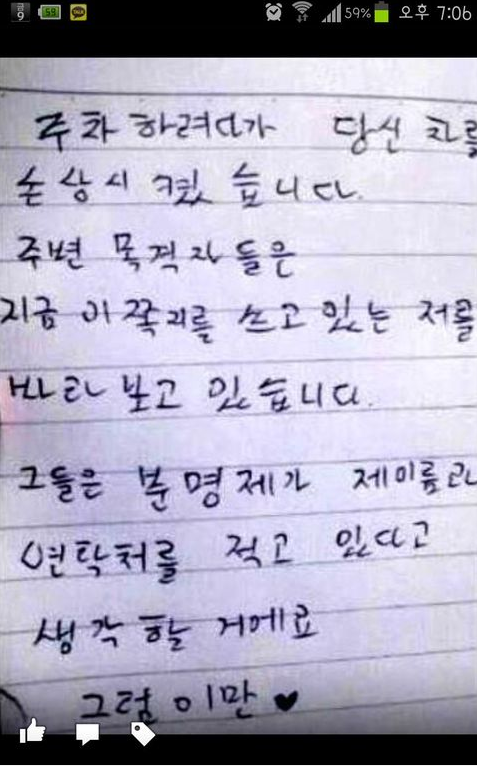 금
9
59
TALK
59%
오후 7:06
주차 하려다가 당신 차를
손상시 켰 습니다.
주변 목격자들은
지금 이 쪽지를 쓰고 있는 저를
바라 보고 있습니다.
그들은 분명 제가 제이름과
연락처를 적고 있다고
생각 할 거에요
그럼 이만 ♥